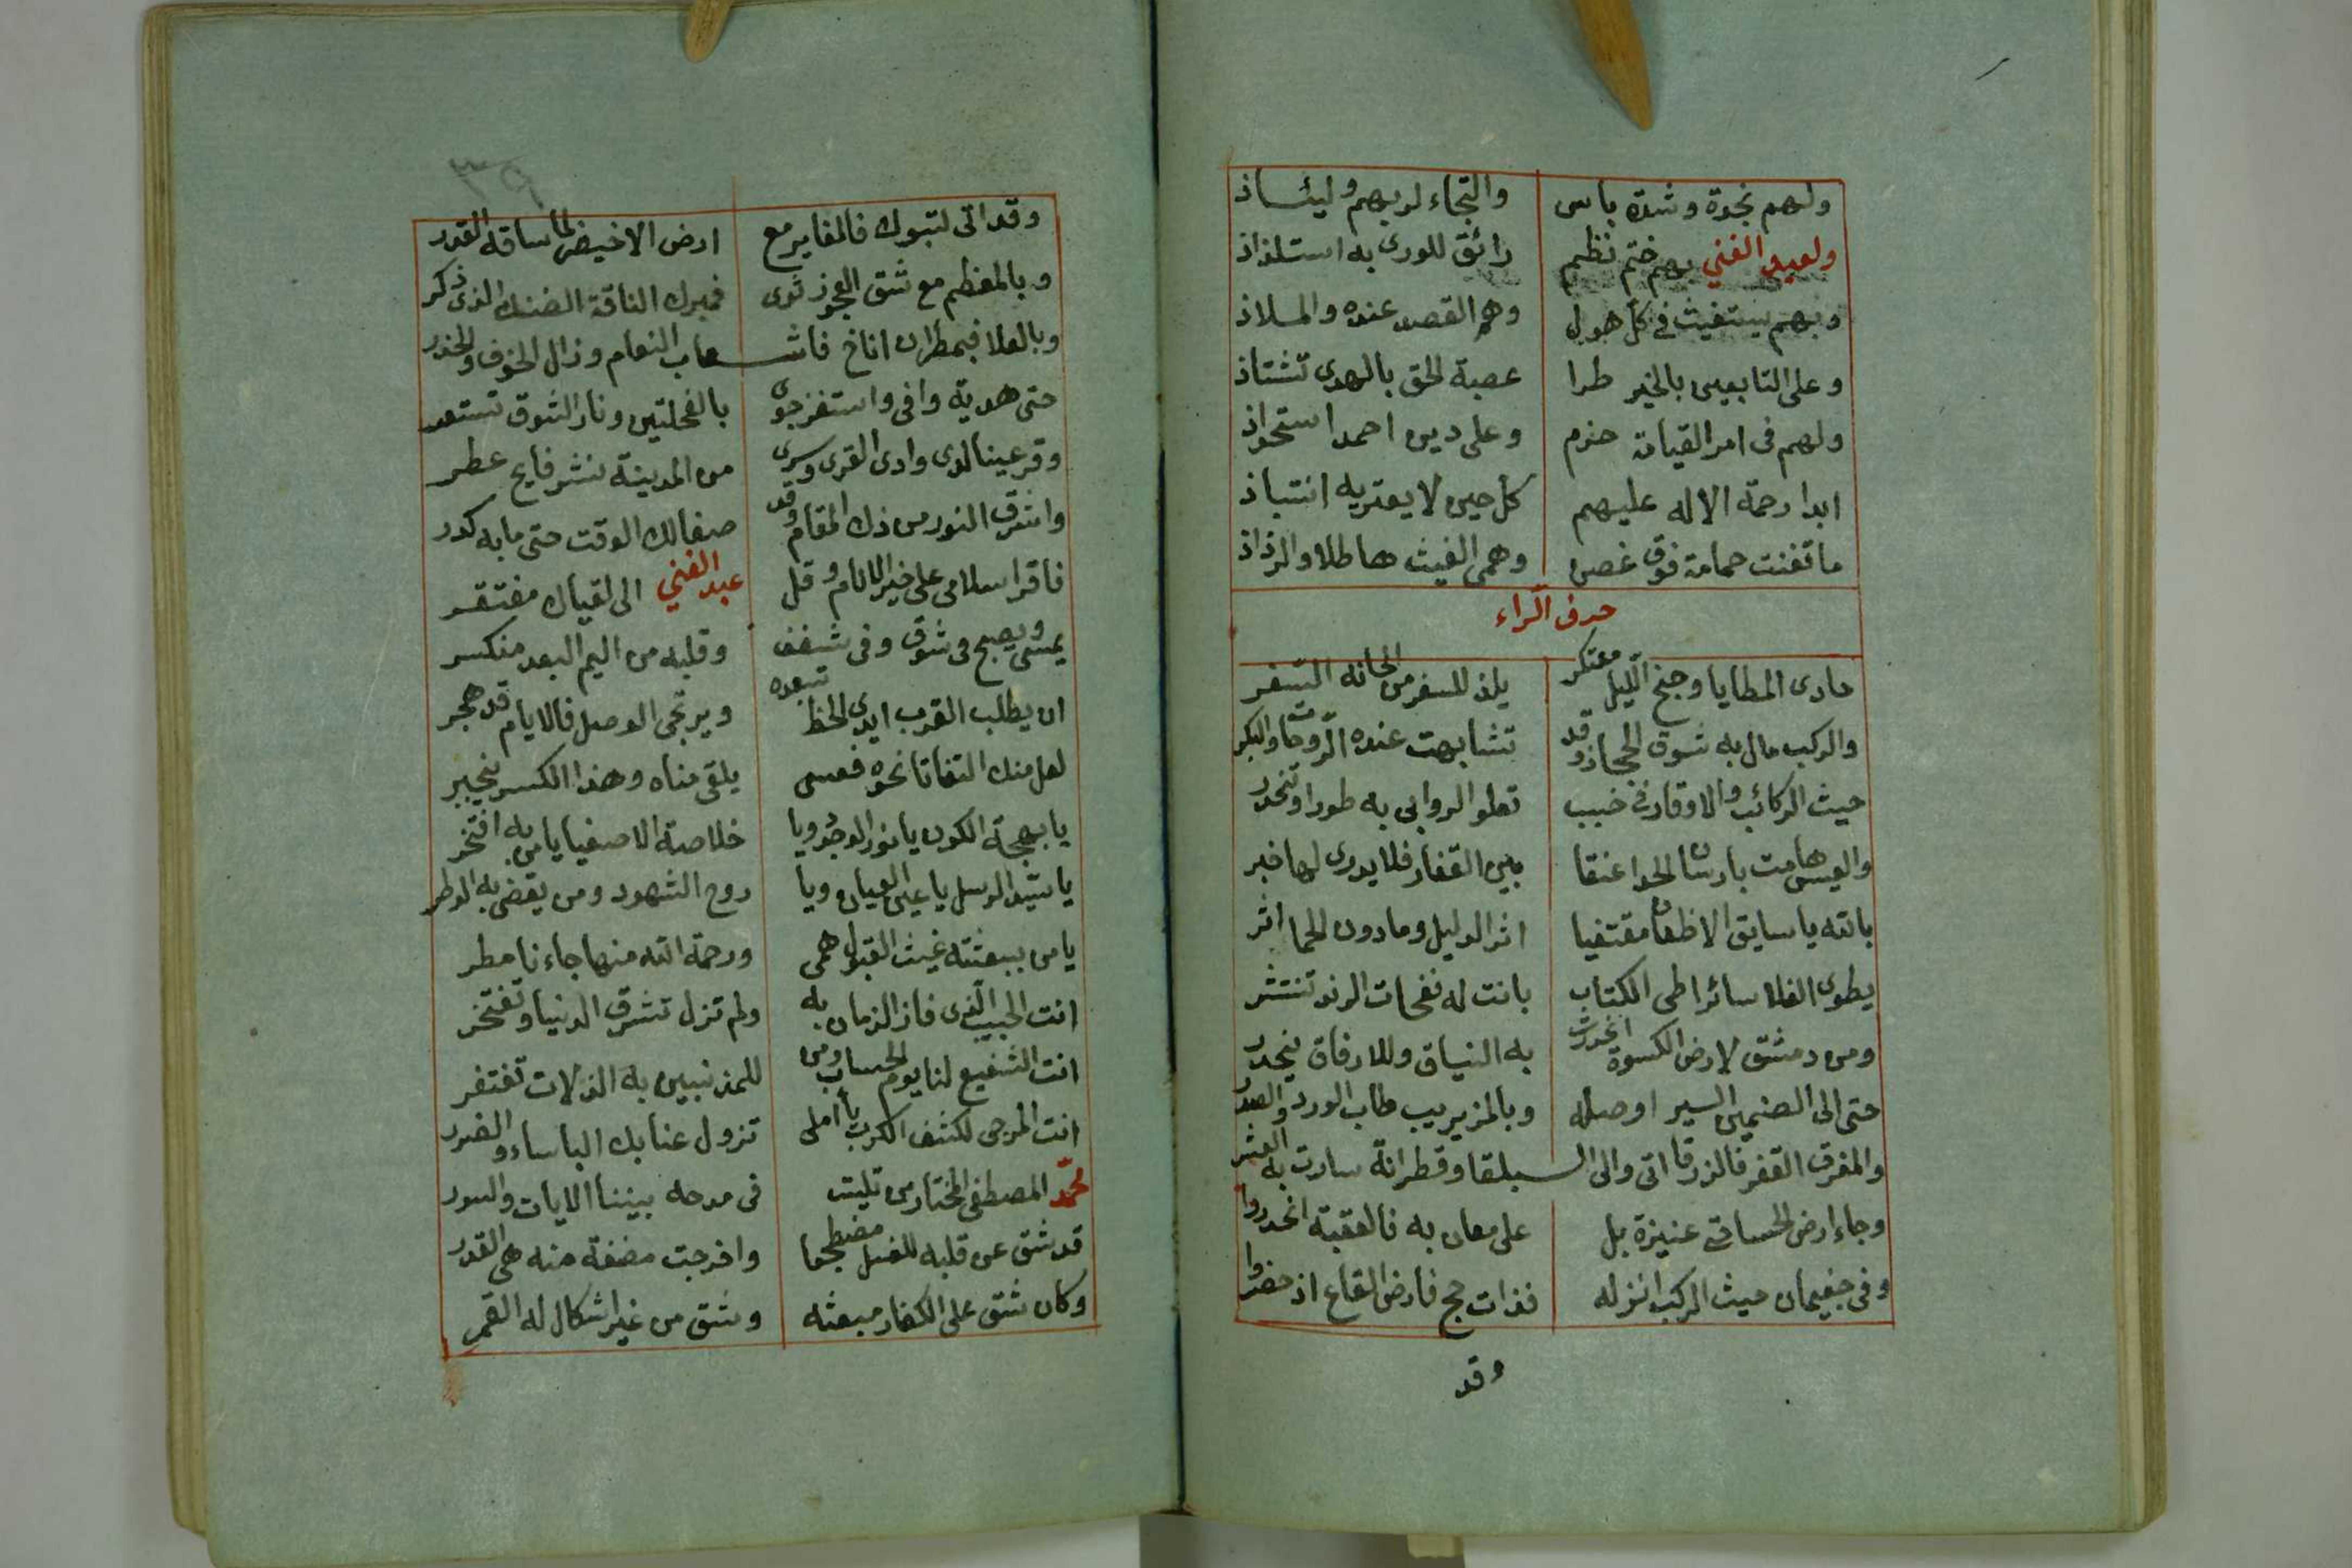 ولهم نجدة وشدة باس والتجاء لربهم وليئاذ
ولعبد الغني بهم ختم نظم رائق للورى به استلذاذ
وبهم يستغيث في كل هول وهم القصد عنده والملاذ
وعلى التابعين بالخير طرا عصبة الحق بالهدى تشتاذ
ولهم في امر القيامة حزم وعلى دين احمد استحواذ
ابدا رحمة الاله عليهم كل حين لا يعتريه انتباذ
ما تغنت حمامة فوق غصن وهمى الغيث هاطلا والرذاذ
حرف الراء
حادى المطايا وجنح الليل معتكر يلذ للسفر من الحانه السفر
والركب مال به شوق الحجاز وقد تشابهت عنده الروحات والبكر
حيث الركائب والاوقار في خبب تعلو الروابى به طورا وتنحدر
والعيس هامت بارسان الحدا عنقا بين القفار فلا يدرى لها خبر
بالله يا سايق الاظعان مقتفيا اثر الدليل وما دون الحما اثر
يطوى الفلا سائرا طى الكتاب بانت له نفحات الرند تنتشر
ومن دمشق لارض الكسوة انحدرت به النياق وللارفاق ينحدر
حتى الى الصنمين السير اوصله وبالمزيريب طاب الورد والصدر
والمفرق القفر فالزرقا اتى والى البلقا وقطرانة سارت به العشر
وجاء ارض الحسا في عنيزة بل على معان به فالعقبة انحدروا
وفى جغيمان حيث الركب انزله فذات حج فارض القاع اذ حضروا
وقد
٣٩
وقد اتى لتبوك فالمغاير مع ارض الاخيضر لما ساقه القدر
وبالمعظم مع شق العجوز ثوى فمبرك الناقة الضنك الذى ذكر
وبالعلا فبمطران اناخ فاشعاب النعام وزال الخوف والحذر
حتى هدية وافى واستفز جوى بالفحلتين ونار الشوق تستعر
وقر عينا لدى وادى القرى وسرى من المدينة نشر فايح عطر
واشرق النور من ذك المقام وقد صفا لك الوقت حتى ما به كدر
فاقرا سلامى على خير الانام وقل عبد الغني الى لقياك مفتقر
يمسى ويصبح فى شوق وفى شغف وقلبه من اليم البعد منكسر
ان يطلب القرب ايدى الحظ تبعده ويرتجى الوصل فالايام قد هجر
لعل منك التفاتا نحوه فعسى يلقى مناه وهذا الكسر ينجبر
يا بهجة الكون يا نور الوجود ويا خلاصة الاصفيا يا من به افتخر
يا سيد الرسل يا عين العيان ويا روح الشهود ومن يقضى به الوطر
يا من ببعثته غيث القبول همى ورحمة الله منها جاءنا مطر
انت الحبيب الذى فاز الزمان به ولم تزل تشرق الدنيا وتفتخر
انت الشفيع لنا يوم الحساب ومن للمذنبين به الزلات تغتفر
انت المرجى لكشف الكرب يا املى تزول عنا بك الباساء والضرر
محمد المصطفى المختار من تليت فى مدحه بيننا الايات والسور
قد شق عن قلبه للغسل مضطجعا واخرجت مضغة منه هى القدر
وكان شق على الكفار مبعثه وشق من غير اشكال له القمر